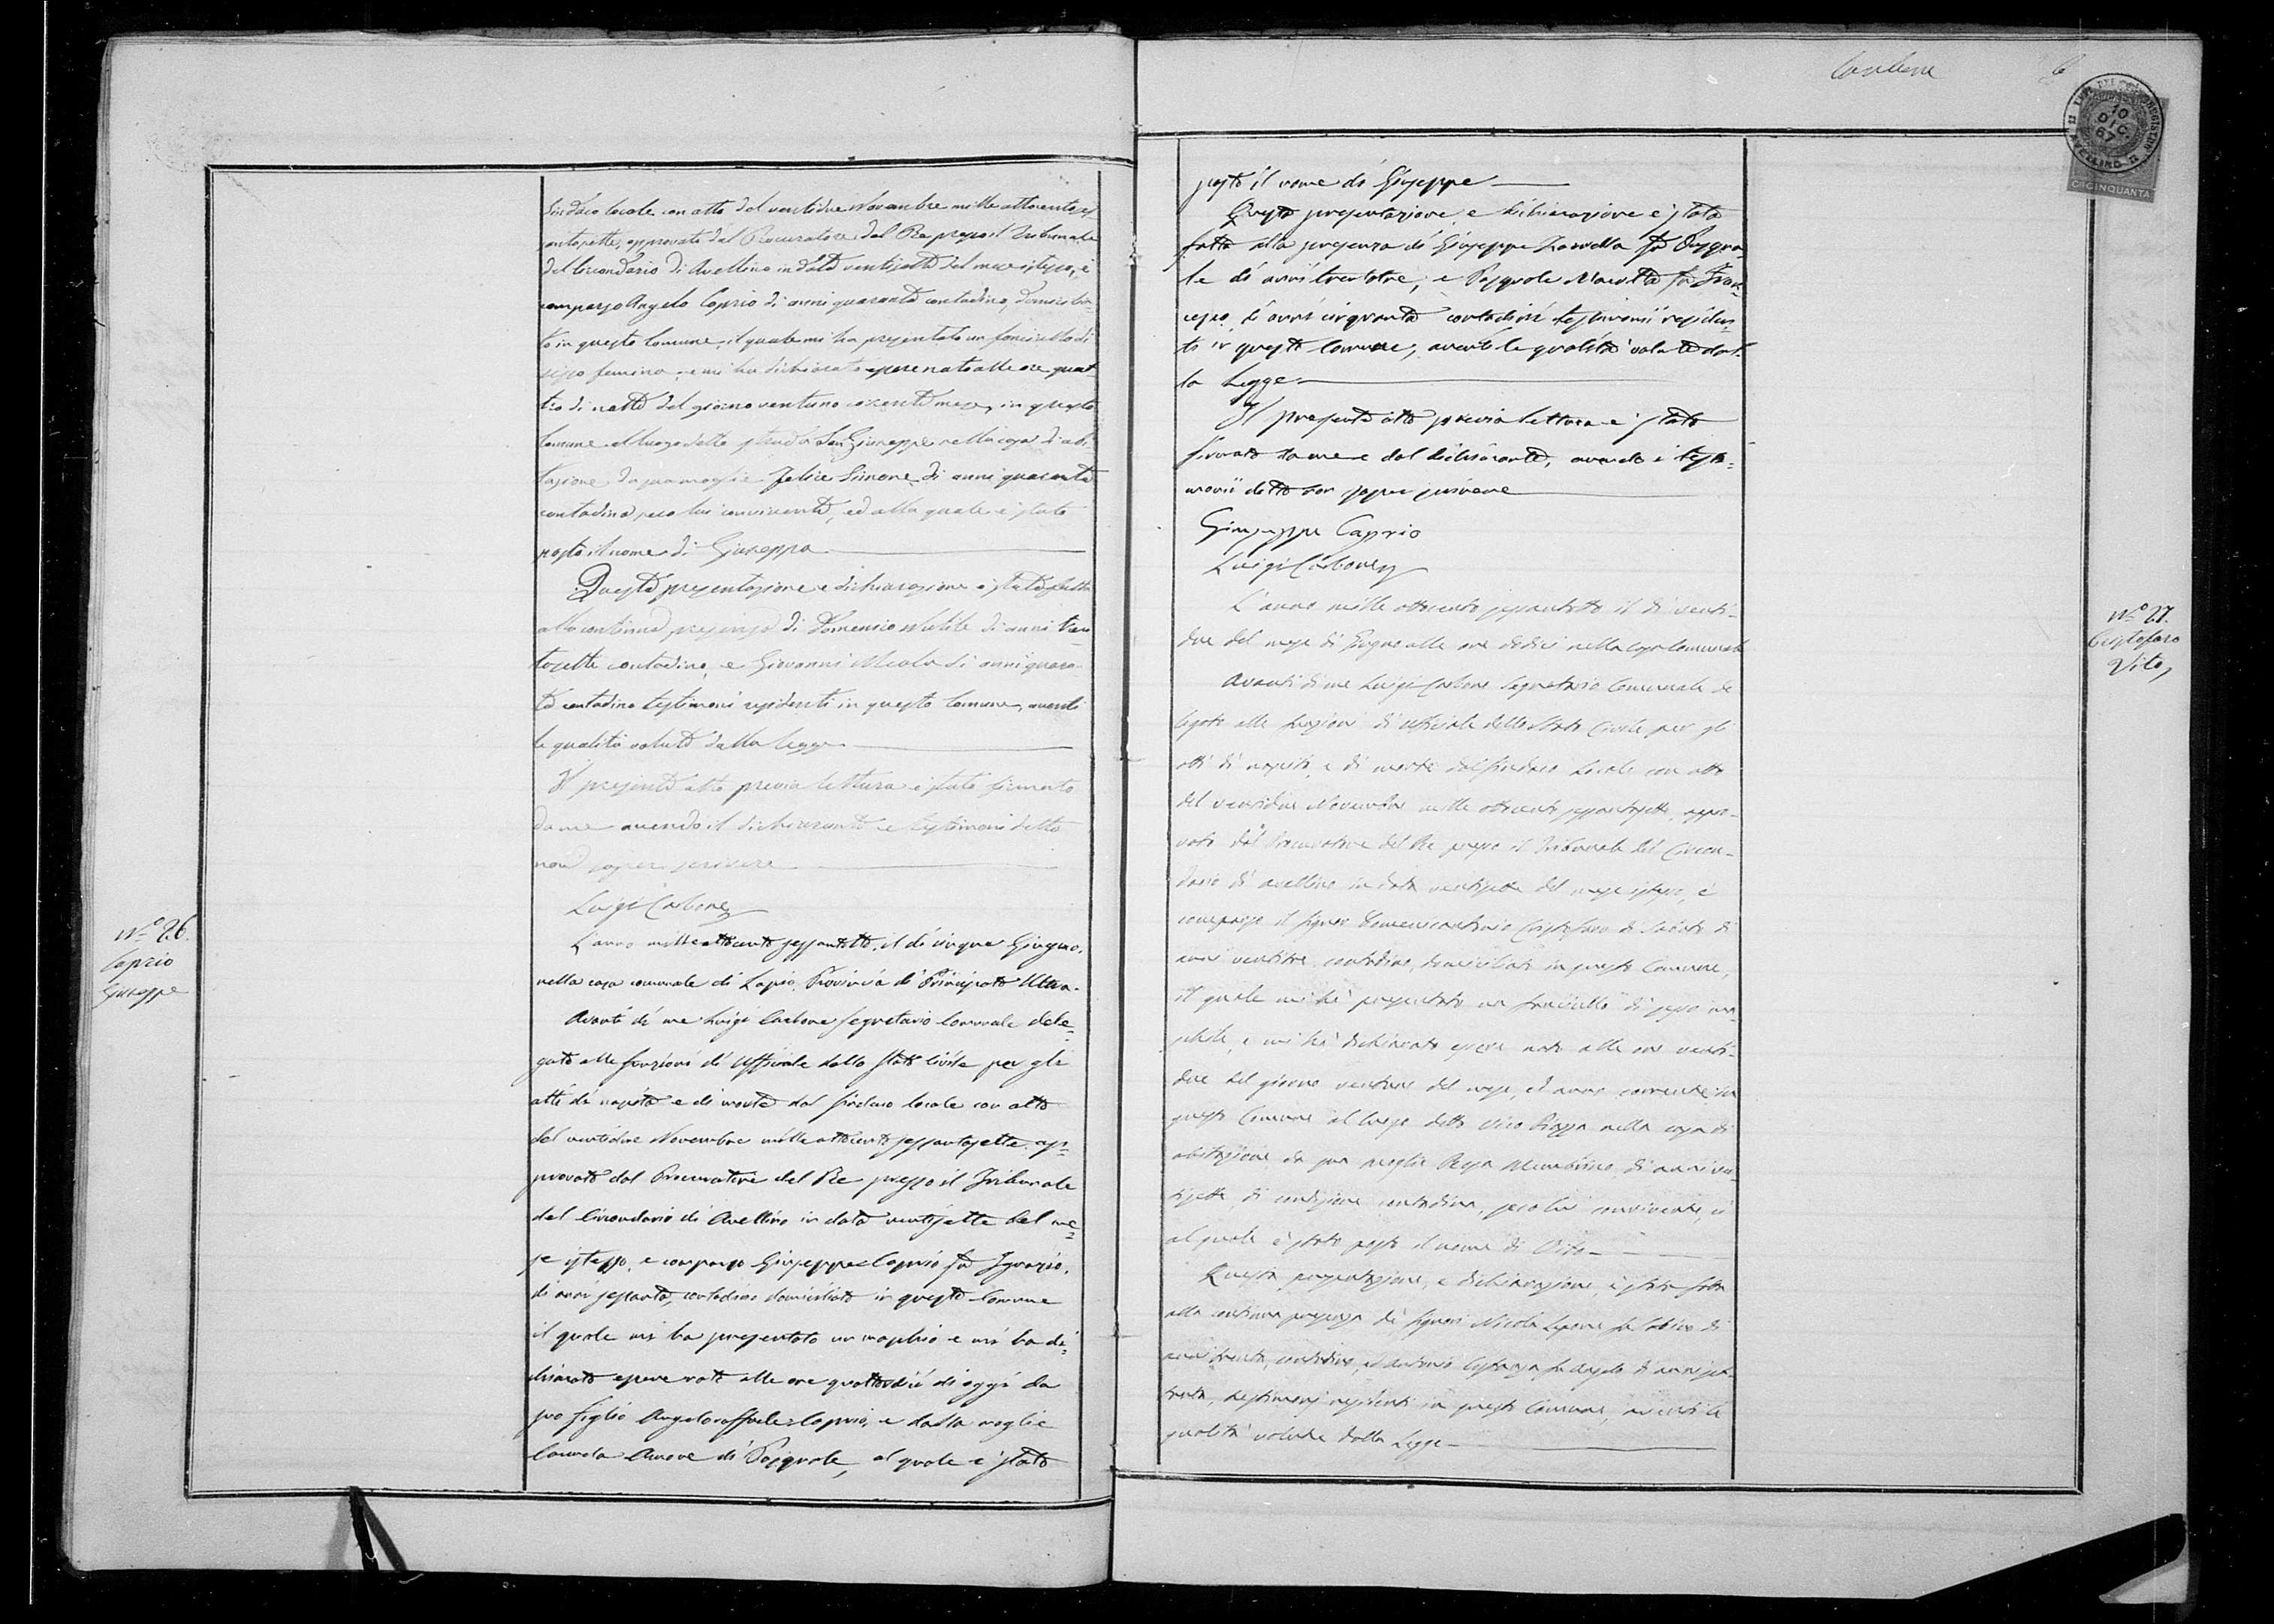 Sindaco locale con atto del ventidue Novembre mille ottocento ses-
santasette, approvato dal Procuratore del Re presso il Tribunale
del Circondario di Avellino in data ventisette del mese istesso, è
comparso Angelo Caprio di anni quaranta contadino, domicilia-
to in questo Comune, il quale mi ha presentato un fanciullo di
sesso femineo, e mi ha dichiarato essere nato alle ore quat-
tro di notte del giorno ventuno corrente mese, in questo
Comune al luogo detto strada San Giuseppe nella casa di abi-
tazione da sua moglie Felice Simone di anni quaranta
contadina seco lui convivente, ed alla quale è stato
posto il nome di Giuseppa
Questa presentazione e dichiarazione è stata fatta
alla continua presenza di Domenico di anni tren-
tasette contadino, e Giovanni Meola di anni quaran-
ta contadino testimoni residenti in questo Comune, aventi
le qualità volute dalla legge
Il presente atto previa lettura è stato firmato
da me avendo il dichiarante e testimoni detto
non saper scrivere
Luigi Carbone
Nº 26.
Caprio
Giuseppe
L'anno mille ottocento sessantotto, il dì cinque Giugno,
nella casa comunale di Lapio, Provincia di Principato Ultra.
Avanti di me Luigi Carbone Segretario Comunale dele-
gato alle funzioni di Uffiziale dello Stato Civile per gli
atti di nascita e di morte dal Sindaco locale con atto
del ventidue Novembre mille ottocento sessantasette, ap-
provato dal Procuratore del Re presso il Tribunale
del Circondario di Avellino in data ventisette del me-
se istesso, è comparso Giuseppe Caprio fu Ignazio,
di anni sessanta, contadino domiciliato in questo Comune
il quale mi ha presentato un maschio e mi ha di-
chiarato essere nato alle ore quattordici di oggi da
suo figlio Angeloraffaele Caprio, e dalla moglie
Carmela di Pasquale, al quale è stato
Carbone 6
10
DIC.
67
AVELLINO
CINQUANTA
posto il nome di Giuseppe
Questa presentazione e dichiarazione è stata
fatta alla presenza di Giuseppe fu Pasqua-
le di anni trentatre, e Pasquale fu Fran-
cesco, di anni cinquanta contadini testimoni residen-
ti in questo Comune, aventi le qualità volute dal-
la Legge
Il presente atto previa lettura è stato
firmato da me e dal dichiarante, avendo i testi-
monii detto non saper scrivere
Giuseppe Caprio
Luigi Carbone
Nº 27.
Cristofaro
Vito
L'anno mille ottocento sessantotto il dì venti-
due del mese di Giugno alle ore dodici nella casa Comunale
Avanti di me Luigi Carbone Segretario Comunale de-
legato alle funzioni di Uffiziale dello Stato Civile per gli
atti di nascita, e di morte dal Sindaco locale con atto
del ventidue Novembre mille ottocento sessantasette, appro-
vato dal Procuratore del Re presso il Tribunale del Circon-
dario di Avellino in data ventisette del mese istesso, è
comparso il signor Domenicantonio Cristofaro di Sabato di
anni ventitre contadino, domiciliato in questo Comune,
il quale mi ha presentato un fanciullo di sesso ma-
schile, e mi ha dichiarato essere nato alle ore venti-
due del giorno ventuno del mese, ed anno corrente in
questo Comune al luogo detto Vico Piazza nella casa di
abitazione da sua moglie Rosa di anni ven-
tisette, di condizione contadina, seco lui convivente,
al quale è stato posto il nome di Vito
Questa presentazione, e dichiarazione, è stata fatta
alla continua presenza de' signori Nicola fu di
anni trenta, contadino, ed Antonio fu Angelo di anni
testimonj residenti in questo Comune, aventi le
qualità volute dalla Legge